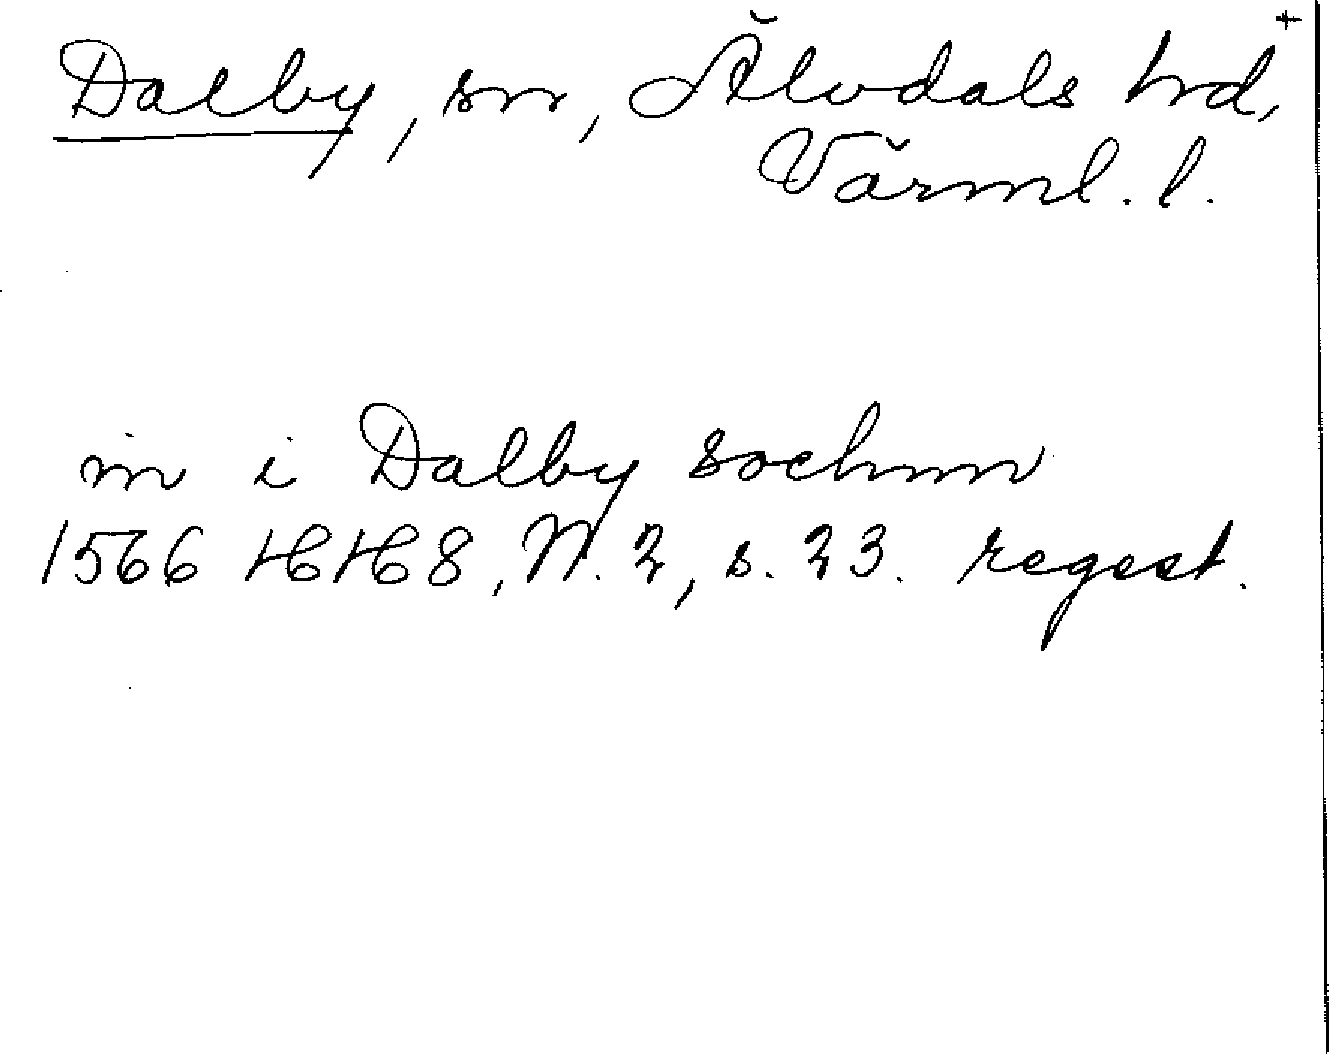 Dalby, sn, Älvdals hd, +
Värml. l.
in i Dalby sochnn
1566 HH 8, N. 2, s. 23. regest.